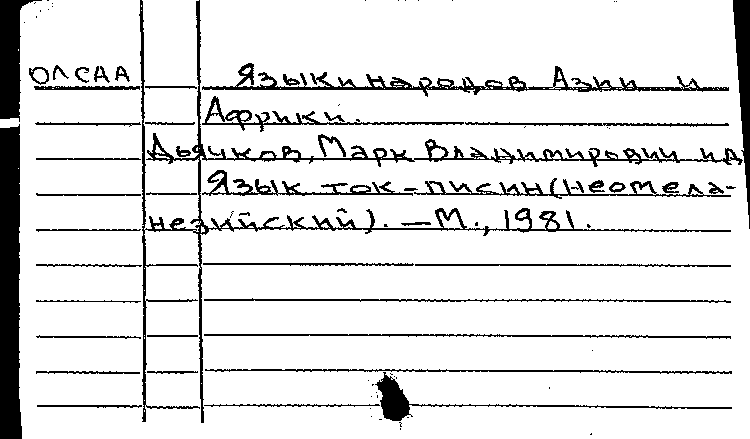 ОЛСАА
Языки народов Азии и
Африки.
Дьячков, Марк Владимирович и др
Язык ток-писин (неомела-
незийский). – М., 1981.